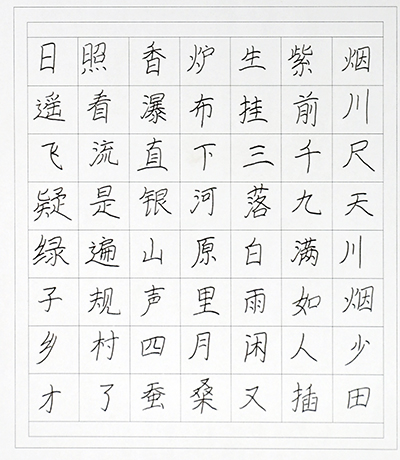 日照香炉生紫烟
遥看瀑布挂前川
飞流直下三千尺
疑是银河落九天
绿遍山原白满川
子规声里雨如烟
乡村四月闲人少
才了蚕桑又插田